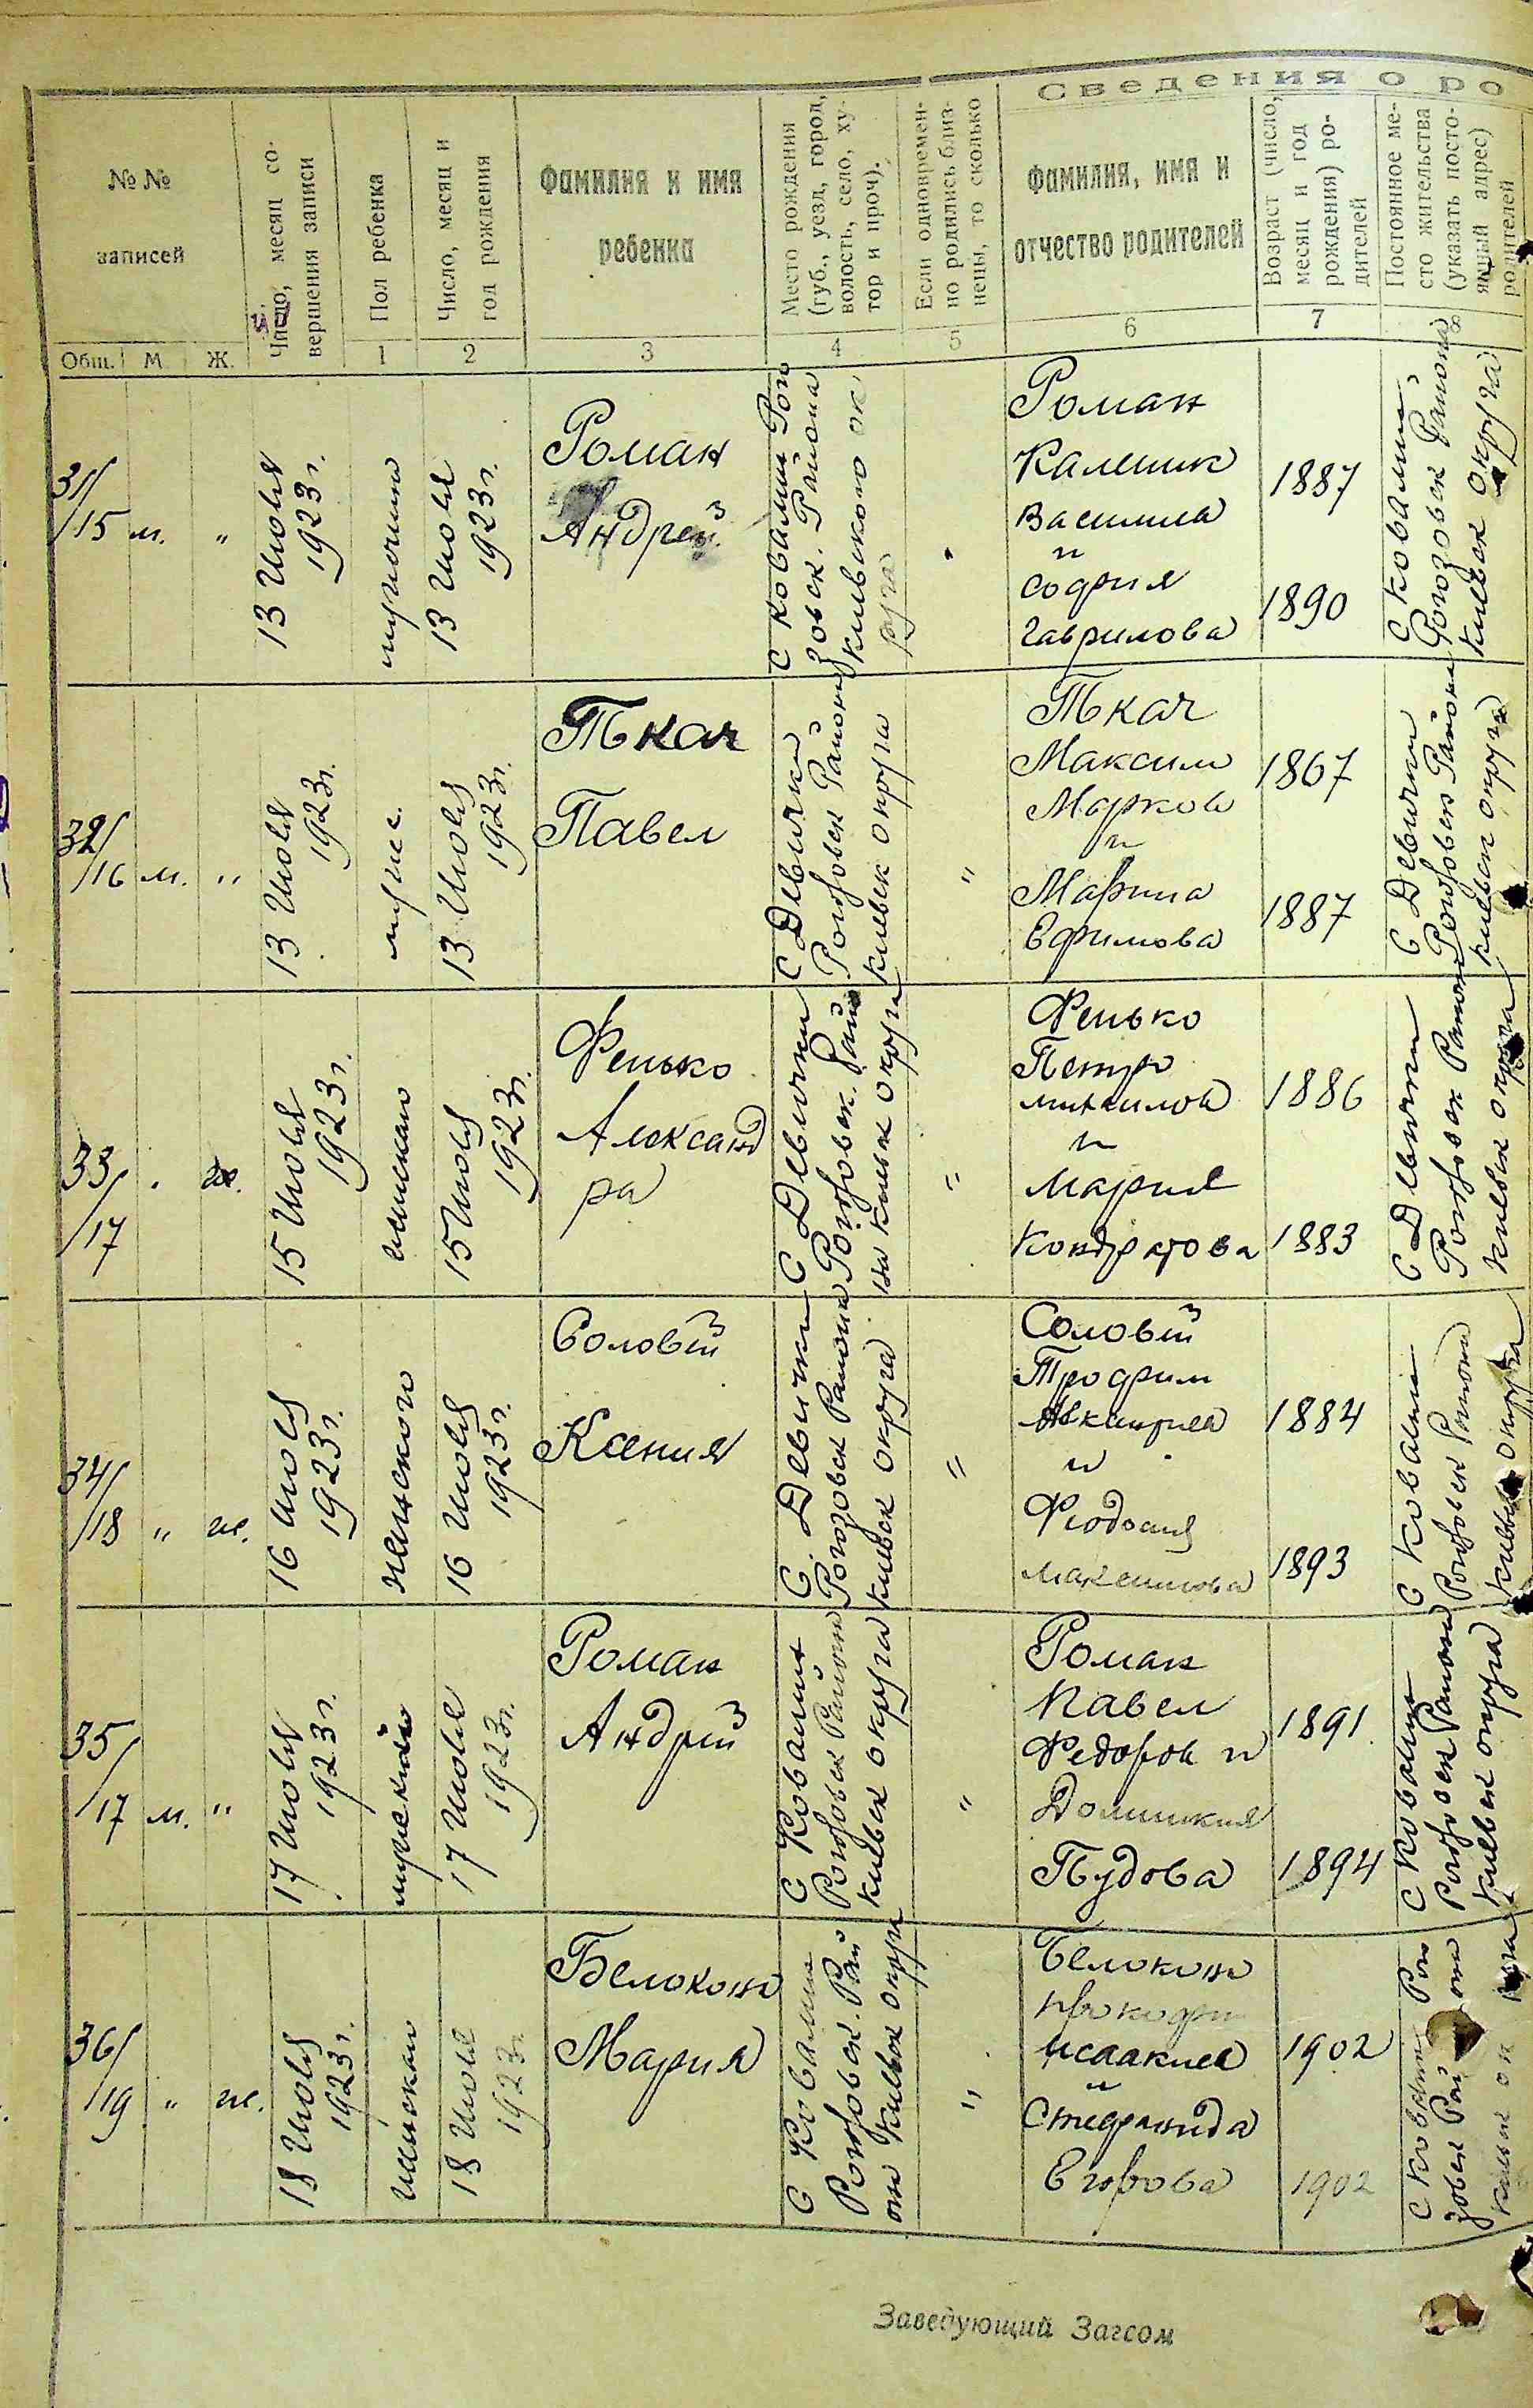 Сведения о ро
№ №
записей
Общ.
М.
Ж.
Число, месяц со-
вершения записи
Пол ребенка
1
Число, месяц и
год рождения
2
Фамилия и имя
ребенка
3
Место рождения
(губ., уезд, город,
волость, село, ху-
тор и проч).
4
Если одновремен-
но родились близ-
нецы, то сколько
5
Фамилия, имя и
отчество родителей
6
Возраст (число,
месяц и год
рождения) ро-
дителей
7
Постоянное ме-
сто жительства
(указать посто-
янный адрес)
родителей
8
31/
/15 м. "
13 Июля
1923 г.
13 Июля
1923 г.
Роман
Андрей
С Ковалин Рого
зовск. Района
Киевского ок
руга
Роман
Калешик
Василиев
и
София
Гаврилова
1887
1890
С Ковалин,
Рогозовск Района
Киевск Округа
32/
/16 м. "
13 Июля
1923 г.
мужс.
13 Июля
1923 г.
Ткач
Павел
С Девички
Рогозовск Района
Киевск Округа
"
Ткач
Максим
Марков
и
Марина
Ефимова
1867
1887
С Девички
Рогозовск Района
Киевск Округа
33/
/17 . ж.
15 Июля
1923 г.
15 Июля
1923 г.
Фенько
Александ
ра
С Девички
Рогозовск. Райо
на Киевск Округа
"
Фенько
Петр
Михаилов
и
Мария
Кондратова
1886
1883
С Девички
Рогозовск Района
Киевск Округа
34/
/18 " ж.
16 Июля
1923 г.
женского
16 Июля
1923 г.
Соловей
Ксения
С. Девички
Рогозовск Района
Киевск Округа
"
Соловей
Трофим
и
Феодосия
Максимова
1884
1893
С Ковалин
Рогозовск Района
Киевск Округа
35/
/17 м. "
17 Июля
1923 г.
17 Июля
1923 г.
Роман
Андрей
С Ковалин
Рогозовск Района
Киевск Округа
"
Роман
Павел
Федоров и
Домникия
Пудова
1891
1894
С Ковалин
Рогозовск Района
Киевск Округа
36/
/19 " ж.
18 Июля
1923 г.
18 Июля
1923 г.
Белоконь
Мария
С Ковалин
Рогозовск. Рай
она Киевск Окру
"
Белоконь
Исаакиев
и
Стефанида
Егорова
1902
1902
С Ковалин Рого
зовск Рай она
Киевск ок руга
Заведующий Загсом